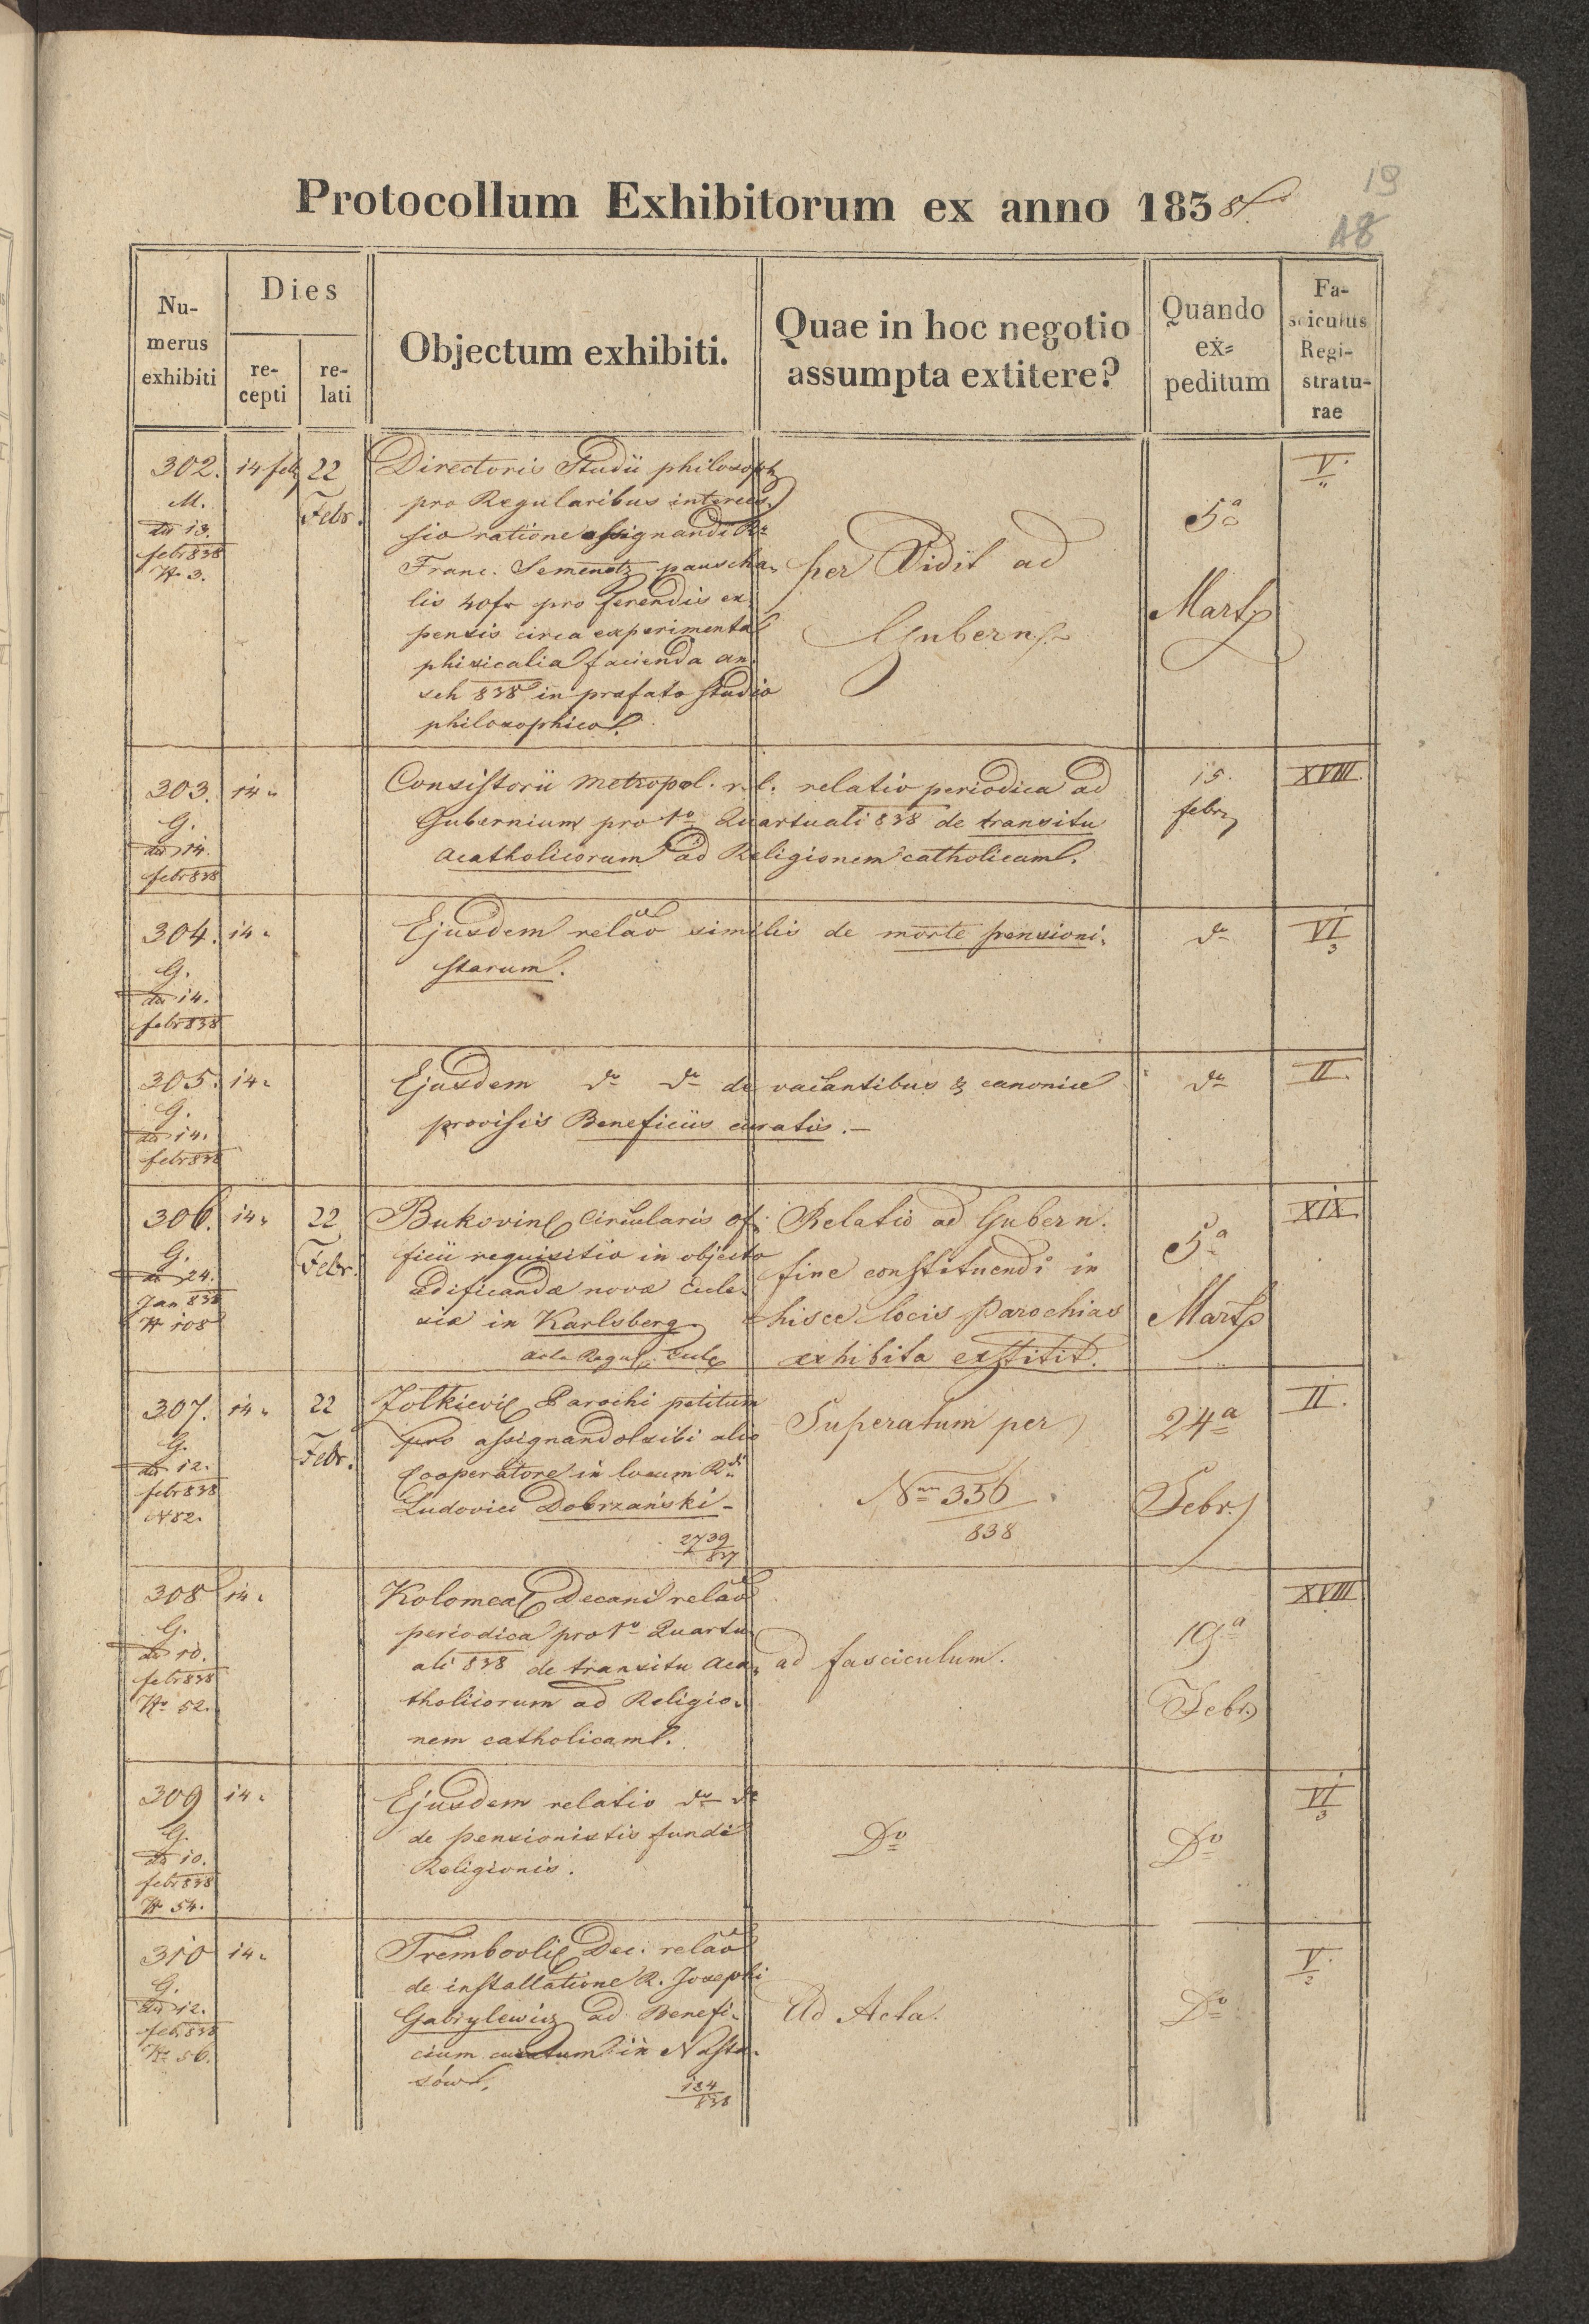 19
18
Protocollum Exhibitorum ex anno 1838.
Nu-
merus
exhibiti
Dies
re-
cepti
re-
lati
Objectum exhibiti.
Quae in hoc negotio
assumpta extitere?
Quando
ex=
peditum
Fa-
sciculus
Regi-
stratu-
rae
302.
M.
13.
febr 838
N 3.
14 feb
22
Febr.
Directoris Studii philosoph
pro Regularibus interces-
sio ratione assignandi R
Franc. Semenetz pauscha-
lis 40fr pro ferendis ex-
pensis circa experimenta
phisicalia facienda an.
sch 838 in præfato studio
philosophico.
per Vidit ad
Gubern
5a
Marty
V.
303.
G.
14.
febr 838
14 "
Consistorii metropol. r. l. relatio periodica ad
Gubernium pro 1o Quartuali 838 de transitu
acatholicorum ad Religionem catholicam.
15.
febr
XVIII.
304.
G.
14.
febr 838
14 "
Ejusdem relao similis de morte pensioni-
starum.
do
VI
3
305.
G.
14.
febr 838
14 "
Ejusdem do do de vacantibus & canonice
provisis Beneficiis curatis. –
do
II.
306.
G.
24.
Jan. 838
N 108
14 "
22
Febr.
Bukovin Circularis of-
ficii requisitio in objecto
ædificandæ novæ Eccle-
siæ in Karlsberg
Relatio ad Gubern.
fine constituendi in
hisce locis Parochias
exhibita exstitit.
5a
Marty
XIX
307.
G.
12.
febr 838
N 82.
14 "
22
Febr.
Zolkievi Parochi petitum
pro assignando sibi alio
Cooperatore in locum Rdi
Ludovici Dobrzański –
2739
837
Superatum per
Nrm 356
838
24a
Febr.
II.
308
G.
10.
febr 838
No 52.
14 "
Kolomea Decani relao
periodica pro 1o Quartu-
ali 838 de transitu aca-
tholicorum ad Religio-
nem catholicam.
ad fasciculum.
19a
Febr.
XVIII
309
G.
10.
febr 838
N 54.
14 "
Ejusdem relatio do do
de pensionistis fundi
Religionis.
Do
Do
VI
3
310
G.
12.
febr 838
No 56.
14 "
Trembovli Dec. relao
de installatione R. Josephi
Gabrylewicz ad Benefi-
cium curatum in Nasta-
sów.
134
838
Ad Acta.
Do
V
2